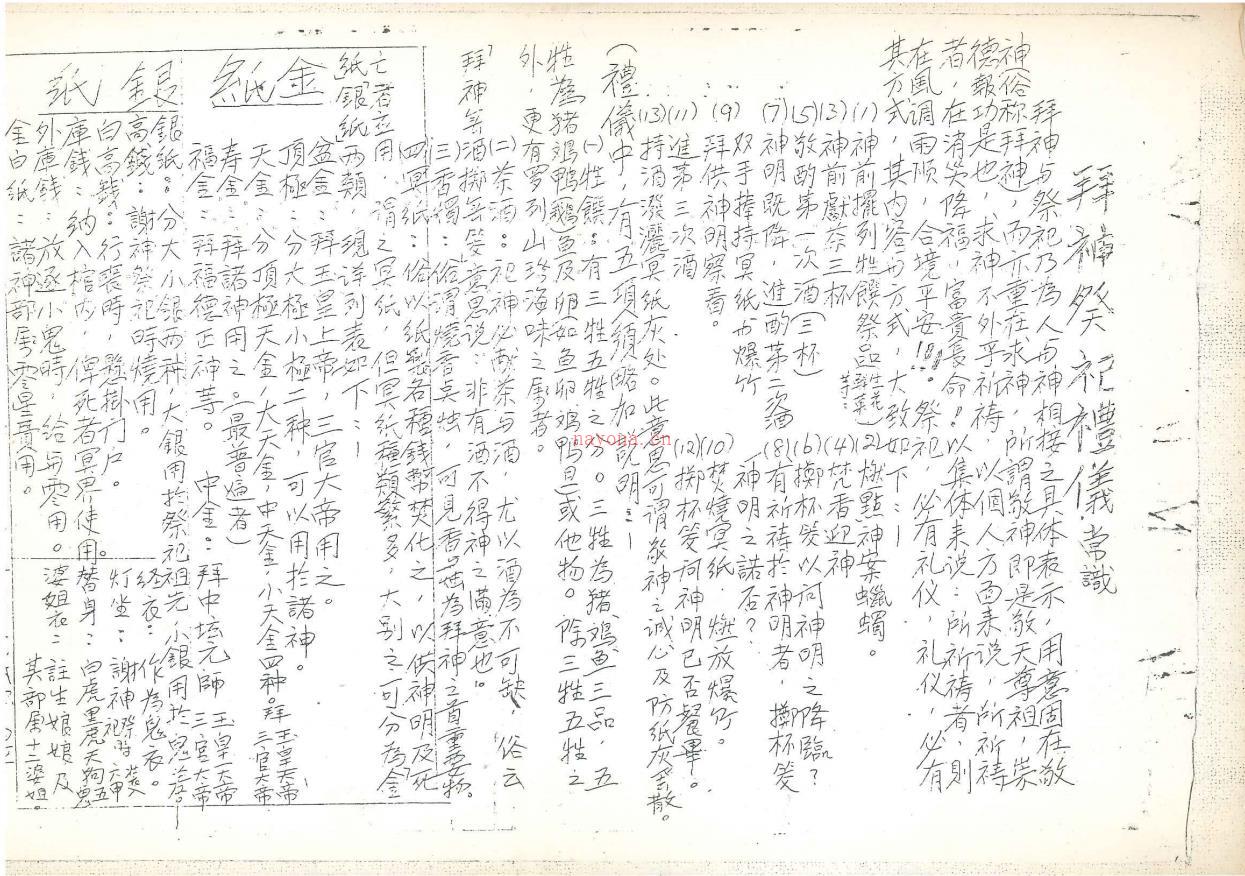 拜神祭祀禮儀常識
拜神与祭祀乃為人与神相接之具体表示，用意固在敬
神俗称拜神，而亦重在求神，所謂敬神即是敬天尊祖，崇
德報功是也，求神不外乎祈祷，以個人方面来说，所祈祷
者，在消災降福，富貴長命！以集体来说：所祈祷者，則
在風调雨顺，合境平安！！。祭祀，必有礼仪，礼仪，必有
其方式，其内容与方式，大致如下：—
(1)神前擺列牲饌祭品(生花菓等…) (2)燃點神案蠟蠋。
(3)神前献茶三杯 (4)焚香迎神
(5)敬酌第一次酒(三杯) (6)擲杯筊以问神明之降臨？
(7)神明既降，進酌第二次酒 (8)有祈祷於神明者，擲杯筊
神明之諾否？
(9)双手捧持冥紙与爆竹
拜供神明察看。 (10)焚燒冥紙．燃放爆竹。
(11)進第三次酒 (12)擲杯筊问神明已否餐畢。
(13)持酒潑灑冥紙灰处。此意思可謂敬神之诚心及防紙灰飛散。
(禮儀中，有五項須略加说明：—
(一)牲饌：有三牲五牲之分。三牲為猪鸡鱼三品，五
牲為猪鸡鴨(鵝)鱼及卵(如鱼卵鸡鴨旦)或他物。除三牲五牲之
外，更有罗列山珍海味之屬者。
(二)茶酒：祀神必献茶与酒，尤以酒為不可缺，俗云
「拜神無酒擲無筊」意思说：非有酒不得神之满意也。
(三)香燭：俗谓燒香点烛，可見香与烛為拜神之首重要物。
(四)冥紙：俗以紙製各種錢幣焚化之，以供神明及死
亡者立用，谓之冥紙，但冥紙種類繁多，大别之可分為金
紙「銀紙」两類，現详列表如下：—
金紙
盆金：拜玉皇上帝，三官大帝用之。
頂極：分大極小極二种，可以用於諸神。
天金：分頂極天金，大天金，中天金，小天金四种。拜玉皇大帝三官大帝
寿金：拜諸神用之。(最普遍者)
福金：拜福德正神等。
中金：拜中坛元師 玉皇大帝 三官大帝
銀紙
銀紙：分大小銀两种，大銀用於祭祀祖先 小銀用於鬼差。
高錢：謝神祭祀時燒用。
白高錢：行喪時，懸掛门户。
庫錢：納入棺内，俾死者冥界使用。
外庫錢：放逐小鬼時，给与零用。
金白紙：諸神部屬零星賣用。
经衣：作為鬼衣。
灯坐：謝神祭祀時
替身：白虎黑虎天狗五鬼
婆姐衣：註生娘娘及
其部屬十二婆姐。
nayona.cn